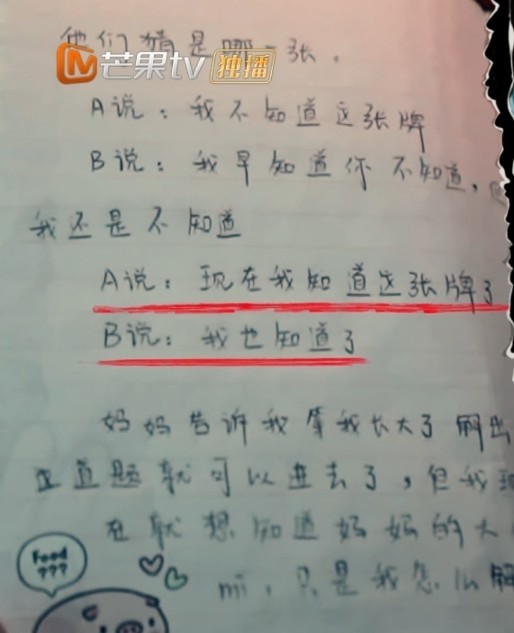 他们猜是哪一张。
芒果tv 独播
A说：我不知道这张牌
B说：我早知道你不知道，
我还是不知道
A说：现在我知道这张牌了
B说：我也知道了
妈妈告诉我等我长大了解出
这道题就可以进去了，但我现
在就想知道妈妈的大
mi，只是我怎么解
Food
???